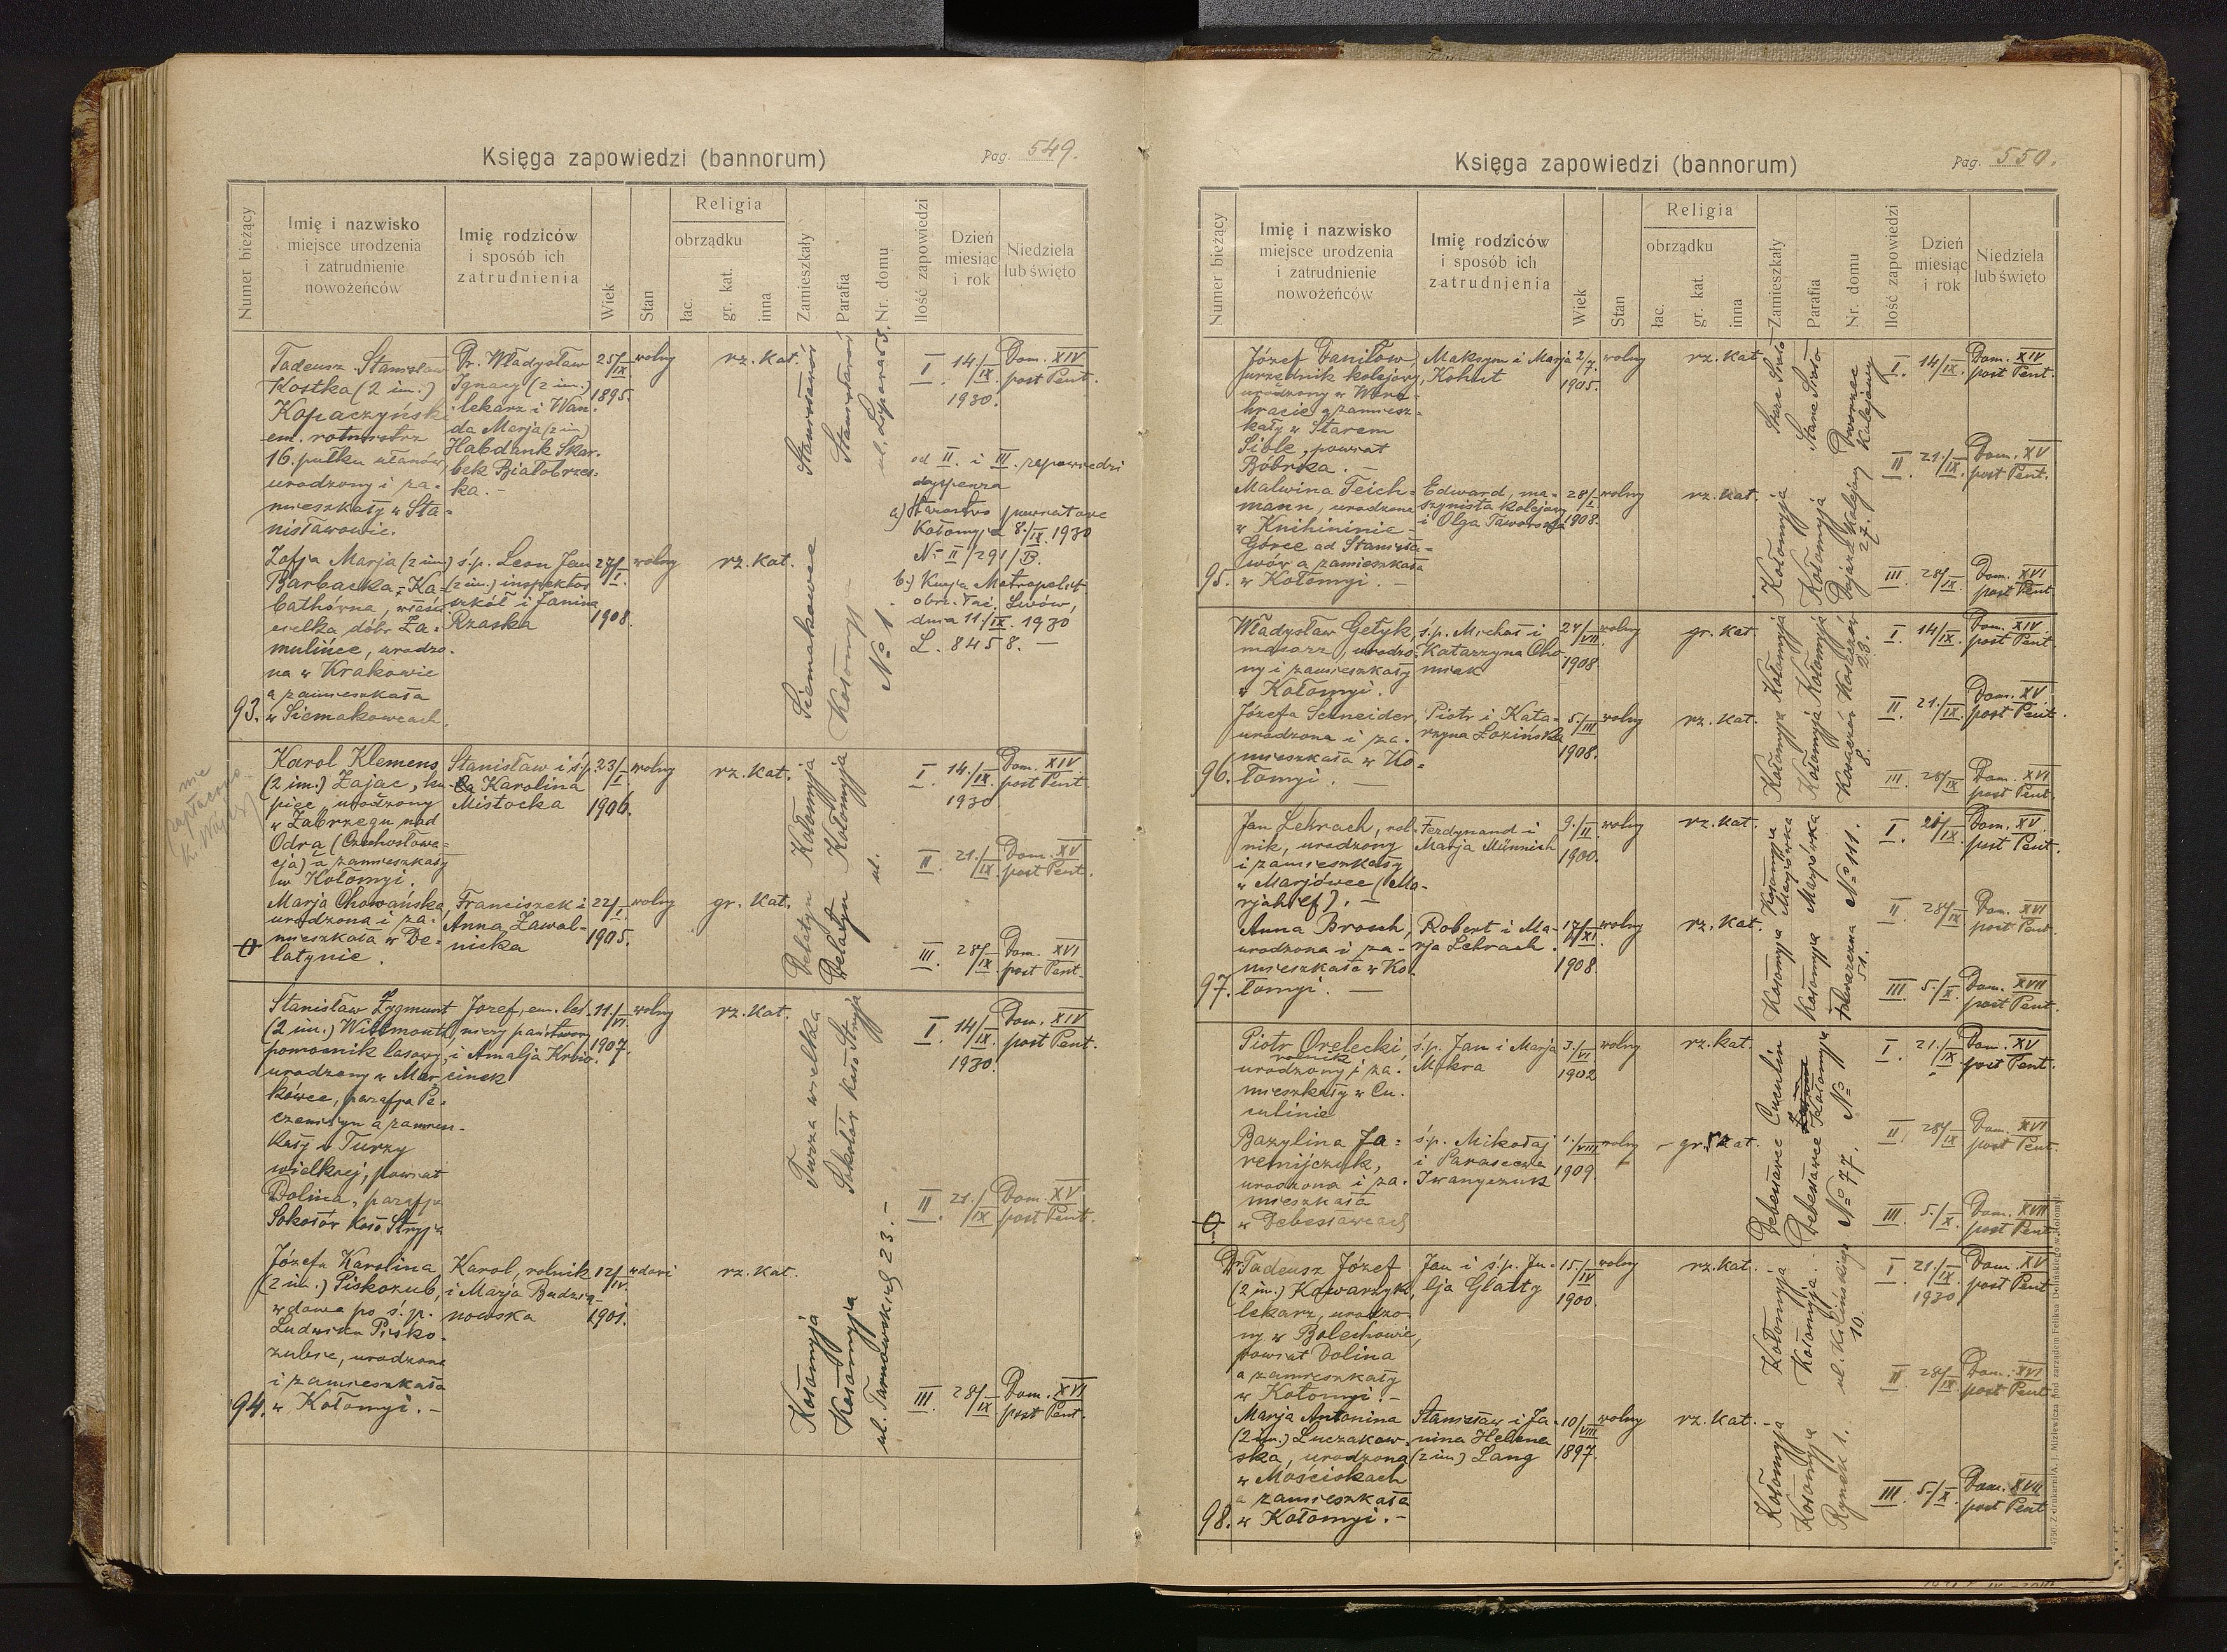 Księga zapowiedzi (bannorum)
Pag. 549.
Numer bieżący
Imię i nazwisko
miejsce urodzenia
i zatrudnienie
nowożeńców
Imię rodziców
i sposób ich
zatrudnienia
Wiek
Stan
Religia
obrządku
łac.
gr. kat.
inna
Zamieszkały
Parafia
Nr. domu
Ilość zapowiedzi
Dzień
miesiąc
i rok
Niedziela
lub święto
Tadeusz Stanisław
Kostka (2 im.)
Kopaczyński
em. rotmistrz
16. pułku ułanów,
urodzony i za-
mieszkały w Sta-
nisławowie.
Dr. Władysław
Ignacy (2 im.)
lekarz i Wan-
da Marja (2 im.)
Habdank Skar-
bek Białobrzes-
ka. -
25/IX
1895.
wolny
rz. kat.
Stanisławów
Stanisławów
I. 14/IX. 1930.
Dom. XIV
post Pent.
od II. i III. zapowiedzi
dyspenza
a) Starostwo powiatowe
Kołomyja 8./IX. 1930
No II/291/B.
b.) Kurja Metropolit.
obrz. łać. Lwów,
dnia 11./IX. 1930
L. 8458. -
Zofja Marja (2 im.)
Barbacka-Ka-
bathówna, właści-
cielka dóbr Ża-
mulińce, urodzo-
na w Krakowie
a zamieszkała
93. w Siemakowcach.
ś.p. Leon Jan
(2 im.) inspektor
szkół i Janina
Rzaska
27/I.
1908.
wolny
rz. kat.
Siemakowce
Kołomyja -
No 1.
nie
zapłacono
Karol Klemens
(2 im.) Zając, ku-
piec, urodzony
w Zabrzegu nad
Odrą (Czechosłowa-
cja) a zamieszkały
w Kołomyi.
Stanisław i ś.p.
Karolina
Mistocka
23/I.
1906.
wolny
rz. kat.
Kołomyja
Kołomyja
ul.
I. 14./IX. 1930
Dom. XIV
post Pent.
II. 21./IX.
Dom. XV
post Pent.
Marja Chowańska,
urodzona i za-
mieszkała w De-
latynie.
Franciszek i
Anna Zawal-
nicka
22/I.
1905.
wolny
gr. kat.
Delatyn
Delatyn
III. 28/IX.
Dom. XVI
post Pent.
Stanisław Zygmunt
(2 im.)
pomocnik lasowy,
urodzony w Mar-
kówce, parafja Pe-
czeniżyn a zamiesz-
kały w Turzy
wielkiej, powiat
Dolina, parafja
Sokołów koło Stryja
Józef, em. leś-
niczy państwowy
i Amalja Krbio-
cinek
11./VI.
1907.
wolny
rz. kat.
Turza wielka
Sokołów koło Stryja
I. 14/IX. 1930.
Dom. XIV
post Pent.
II. 21./IX.
Dom. XV
post Pent.
Józefa Karolina
(2 im.) Piskozub,
wdowa po ś.p.
Ludwiku Pisko-
zubie, urodzona
i zamieszkała
94. w Kołomyi. -
Karol, rolnik
i Marja Budzia-
nowska
12/IV.
1901.
rz. kat.
Kołomyja
Kołomyja
ul. Tarnowskich 23. -
III. 28/IX
Dom. XVI
post Pent.
Księga zapowiedzi (bannorum)
Pag. 550.
Numer bieżący
Imię i nazwisko
miejsce urodzenia
i zatrudnienie
nowożeńców
Imię rodziców
i sposób ich
zatrudnienia
Wiek
Stan
Religia
obrządku
łac.
gr. kat.
inna
Zamieszkały
Parafia
Nr. domu
Ilość zapowiedzi
Dzień
miesiąc
i rok
Niedziela
lub święto
Józef Daniłow,
urzędnik kolejowy,
urodzony w
a zamiesz-
kały w Starem
Siole, powiat
Bóbrka. -
Maksym i Marja
Kohut
2/V.
1905.
wolny
rz. kat.
Stare Sioło
Stare Sioło
Dworzec
kolejowy
I. 14/IX.
Dom. XIV
post Pent.
II 21./IX.
Dom. XV
post Pent.
Malwina Teich-
mann, urodzona
w Knihininie
Górce ad Stanisła-
wów a zamieszkała
95. w Kołomyi. -
Edward, ma-
szynista kolejowy
i Olga Taworska
28/I
1908.
wolny
rz. kat.
Kołomyja
Kołomyja
27.
III. 28/IX
Dom. XVI
post Pent.
Władysław Getyk,
masarz, urodzo-
ny i zamieszkały
w Kołomyi.
ś.p. Michał i
Katarzyna Cho-
miak
27/VII
1908
wolny
gr. kat.
Kołomyja
Kołomyja
23.
I. 14/IX.
Dom. XIV
post Pent.
II. 21./IX.
Dom. XV
post Pent.
Józefa Schneider,
urodzona i za-
mieszkała w Ko-
96. łomyi. -
Piotr i Kata-
rzyna Łozińska
5./III
1908.
wolny
rz. kat.
Kołomyja
Kołomyja
8.
III. 28/IX.
Dom. XVI
post Pent.
Jan Lehrach, rol-
nik, urodzony
i zamieszkały
w Marjówce (Ma-
rjahilf). -
Ferdynand i
Marja Münnich
9./II.
1900.
wolny
rz. kat.
Kołomyja
Marjówka
Marjówka
No 111.
I. 21/IX.
Dom. XV.
post Pent.
II 28/IX.
Dom. XVI
post Pent.
Anna Brosch,
urodzona i za-
mieszkała w Ko-
97. łomyi. -
Robert i Ma-
rja Lehrach.
17/XI.
1908.
wolny
rz. kat.
Kołomyja
Kołomyja
51.
III. 5./X.
Dom. XVII
post Pent.
Piotr Orelecki,
rolnik
urodzony i za-
mieszkały w Cu-
culinie
ś.p. Jan i Marja
Mokra
3./VI
1902
wolny
rz. kat.
Cuculin
Kołomyja
No 11.
I. 21./IX.
Dom. XV
post Pent.
II 28/IX
Dom. XVI
post Pent.
Bazylina Ja-
remijczuk,
urodzona i za-
mieszkała
w Debesławcach
ś.p. Mikołaj
i Parascewa
Iwanyczuk
1./VIII
1909.
wolny
gr. kat.
Debesławce
Debesławce
No 77.
III. 5./X.
Dom. XVII
post Pent.
Dr. Tadeusz Józef
(2 im.) Kowarzyk,
lekarz, urodzo-
ny w Bolechowie,
powiat Dolina
a zamieszkały
w Kołomyi. -
Jan i ś.p. Ju-
lja Glatty
15/IV
1900.
wolny
rz. kat.
Kołomyja
Kołomyja
ul. Kilińskiego
10.
I 21./IX. 1930
Dom. XV
post Pent.
II 28/IX.
Dom. XVI
post Pent.
Marja Antonina
(2 im.) Łuczakow-
ska, urodzona
w Mościskach
a zamieszkała
98. w Kołomyi. -
Stanisław i Ja-
nina Helena
(2 im.) Lang
10/VIII
1897.
wolny
rz. kat. -
Kołomyja
Kołomyja
Rynek 1.
III. 5./X.
Dom. XVII
post Pent
4750. Z drukarni A. J. Miziewicza pod zarządem Feliksa Dolińskiego w Kołomyi.